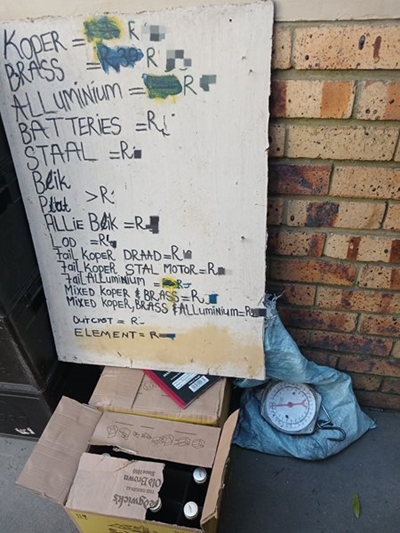 KOPER = R
BRASS = R
ALLUMINIUM = R
BATTERIES = R
STAAL = R
Blik
Plaat > R
ALLiE BLiK = R
LOD = R
fail KOPER DRAAD = R
fail KOPER STAL MOTOR = R
fail ALLuminium = R
MIXED KOPER & BRASS = R
MIXED KOPER, BRASS & ALLUMINIUM = R
OUTCAST = R
ELEMENT = R
Sedgwick's
THE ORIGINAL
Old Brown